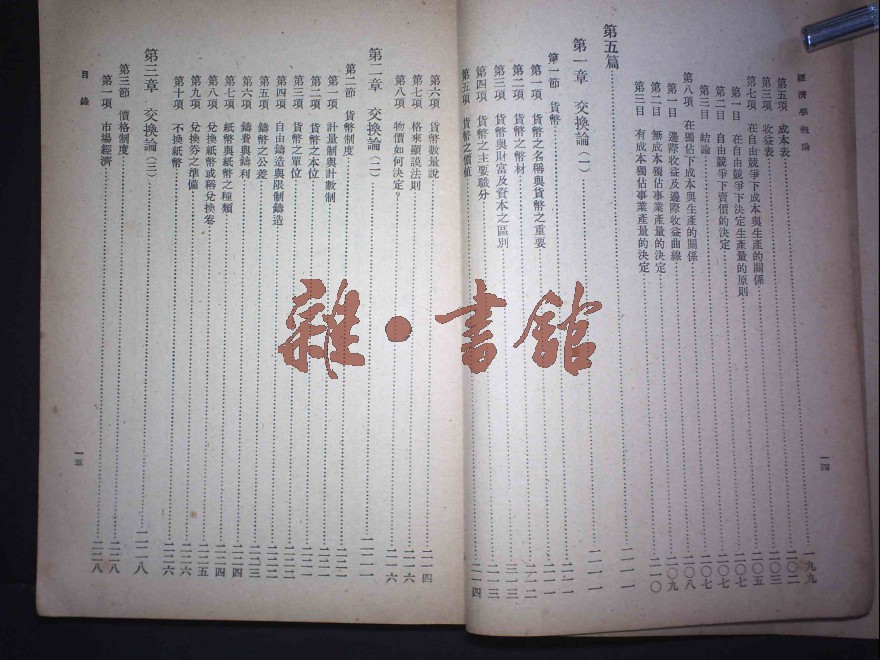 經濟學概論
第五項　成本表…一九九
第三項　收益表…二〇二
第七項　在自由競爭下成本與生產的關係…二〇三
第一目　在自由競爭下決定生產量的原則…二〇五
第二目　自由競爭下賣價的決定…二〇七
第三目　結論…二〇七
第八項　在獨佔下成本與生產的關係…二〇七
第一目　邊際收益及邊際收益曲線…二〇八
第二目　無成本獨佔事業產量的決定…二〇九
第三目　有成本獨佔事業產量的決定…二一〇
第五篇…二一一
第一章　交換論(一)…二一一
第一節　貨幣…二一一
第一項　貨幣之名稱與貨幣之重要…二一一
第二項　貨幣之幣材…二一二
第三項　貨幣與財富及資本之區別…二一三
第四項　貨幣之主要職分…二一三
第五項　貨幣之價值…二一四
一四
第六項　貨幣數量說…二一四
第七項　格來顯謨法則…二一六
第八項　物價如何決定？…二一六
第二章　交換論(二)…二二一
第二節　貨幣制度…二二一
第一項　計量制與計數制…二二一
第二項　貨幣之本位…二二二
第三項　貨幣之單位…二二二
第四項　自由鑄造與限制鑄造…二二二
第五項　鑄幣之公差…二二三
第六項　鑄費與鑄利…二二四
第七項　紙幣與紙幣之種類…二二四
第八項　兌換紙幣或稱兌換卷…二二五
第九項　兌換券之準備…二二六
第十項　不換紙幣…二二六
第三章　交換論(三)…二二八
第三節　價格制度…二二八
第一項　市場經濟…二二八
目錄
一五
雜·書館